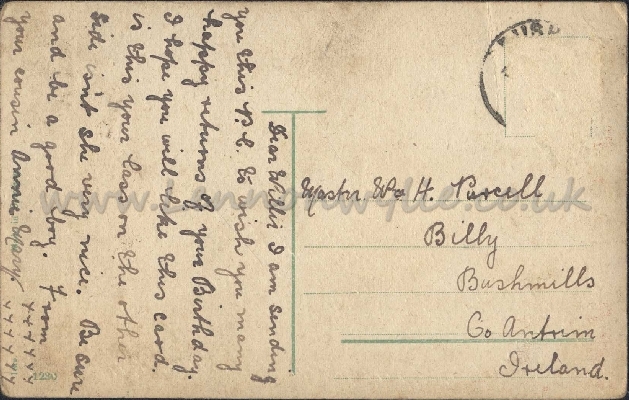 Dear Willie I am sending
you this P.C. to wish you many
happy returns of your Birthday.
I hope you will like this card.
is this your lass on the other
side isn't she very nice. Be sure
and be a good boy. From
your cousin Annie
Master Wm H. Purcell
Billy
Bushmills
Co Antrim
Ireland.
1230